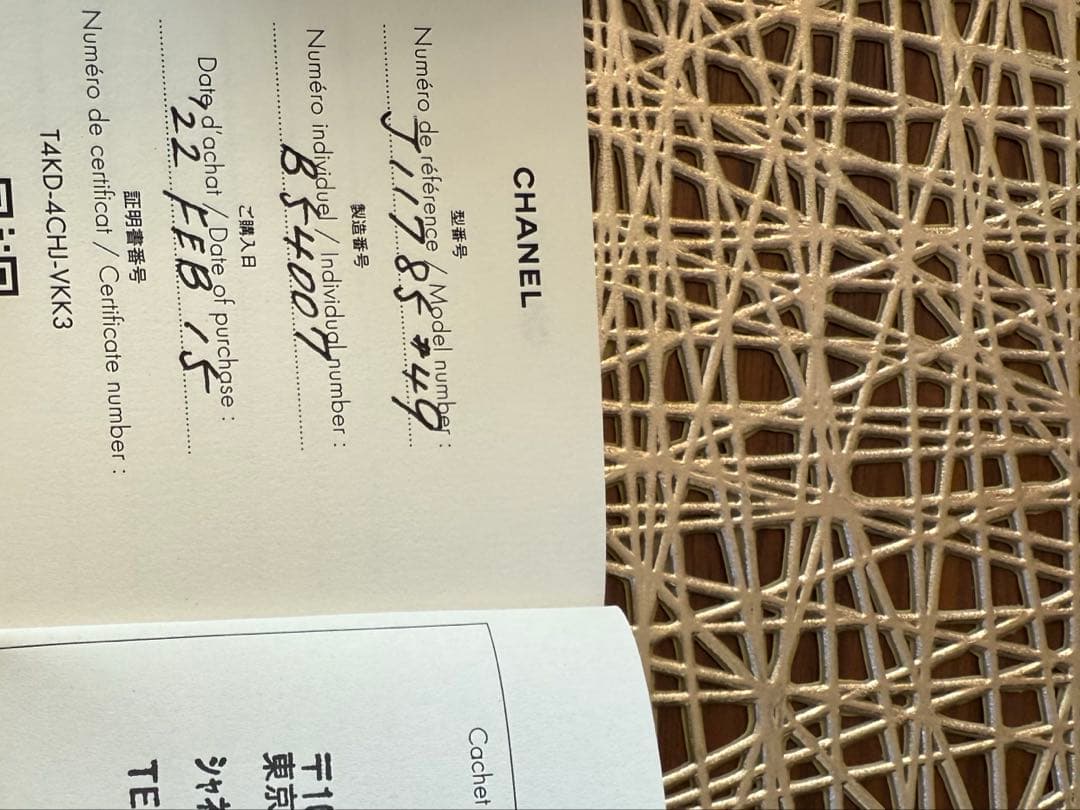 CHANEL
型番号
Numéro de référence / Model number :
J11785 #49
製造番号
Numéro individuel / Individual number :
B54007
ご購入日
Date d'achat / Date of purchase :
22 FEB '15
証明書番号
Numéro de certificat / Certificate number :
T4KD-4CHJ-VKK3
Cachet
〒10
東京
シャネ
TE